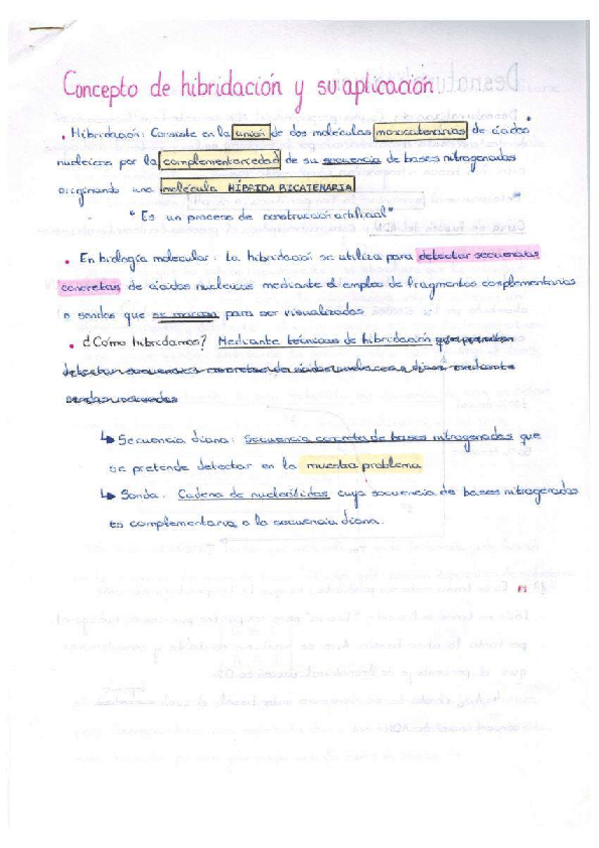 Concepto de hibridación y su aplicación
• Hibridación: Consiste en la unión de dos moléculas monocatenarias de ácidos
nucleicos por la complementariedad de su secuencia de bases nitrogenadas
originando una molécula HÍBRIDA BICATENARIA
"Es un proceso de construcción artificial"
• En biología molecular: La hibridación se utiliza para detectar secuencias
concretas de ácidos nucleicos mediante el empleo de fragmentos complementarios
o sondas que se marcan para ser visualizadas
• ¿Cómo hibridamos? Mediante técnicas de hibridación que permiten
detectar secuencias concretas de ácidos nucleicos o diana mediante
sondas marcadas
↳ Secuencia diana: Secuencia concreta de bases nitrogenadas que
se pretende detectar en la muestra problema
↳ Sonda: Cadena de nucleótidos cuya secuencia de bases nitrogenadas
es complementaria a la secuencia diana.